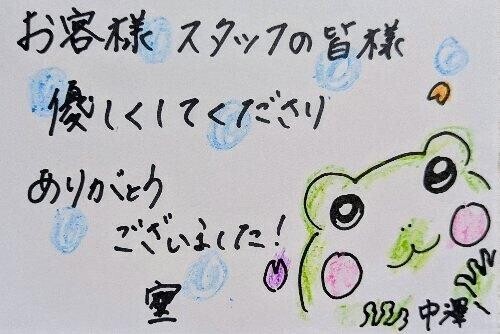 お客様 スタッフの皆様
優しくしてくださり
ありがとう
ございました!
空
中澤